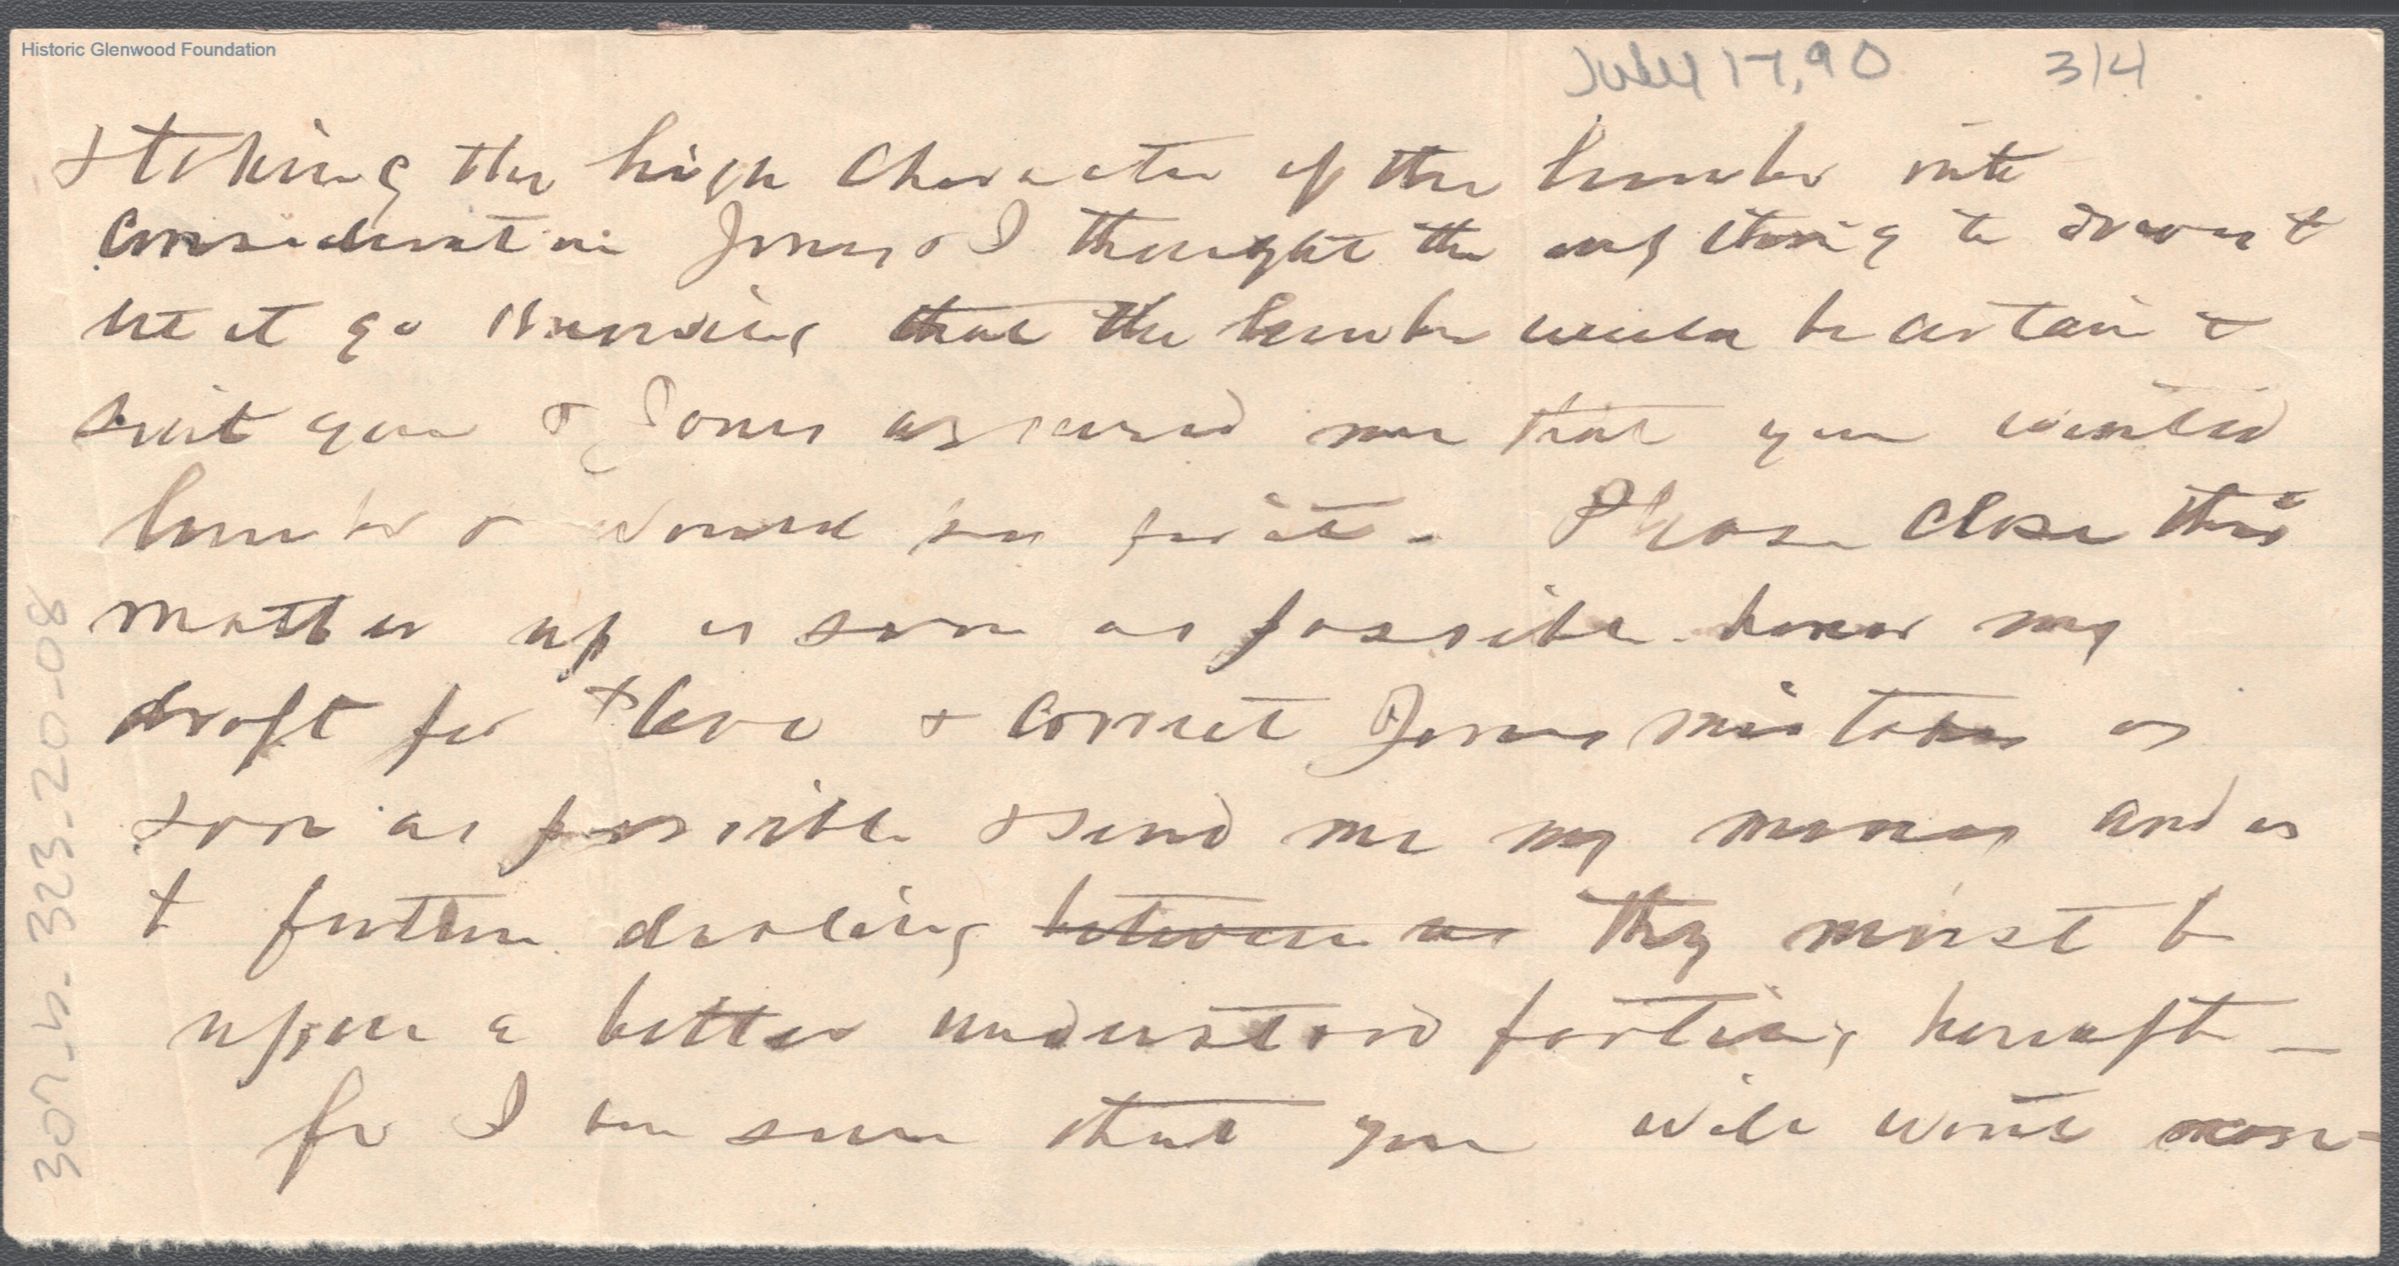 Historic Glenwood Foundation
July 17, 90 3/4
& taking the high character of the lumber into
consideration Jones & I thought the only thing to do was to
let it go knowing that the lumber would be certain to
suit you & Jones assured me that you wanted
lumber & would . Please close this
matter up as soon as possible honor my
draft for & correct Jones mistake as
soon as possible & send me my money and as
to future dealing between us they must be
upon a better understood footing hereaft –
for I am sure that you will want more
307-15-323-20-08